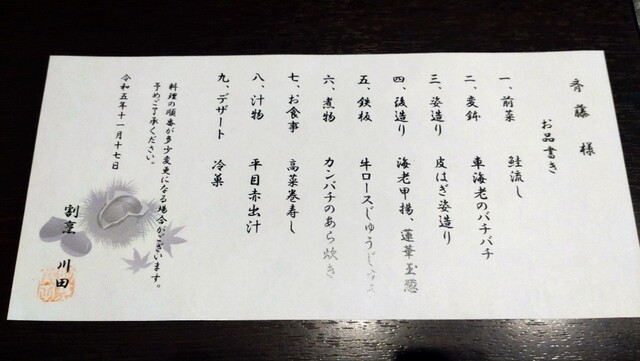 斉藤 様
お品書き
一、前菜 鮭流し
二、変鉢 車海老のバチバチ
三、姿造り 皮はぎ姿造り
四、後造り 海老甲揚、蓮華玉葱
五、鉄板 牛ロースじゅうじゅう
六、煮物 カンパチのあら炊き
七、お食事 高菜巻寿し
八、汁物 平目赤出汁
九、デザート 冷菓
料理の順番が多少変更になる場合がございます。
予めご了承ください。
令和五年十一月十七日
割烹 川田